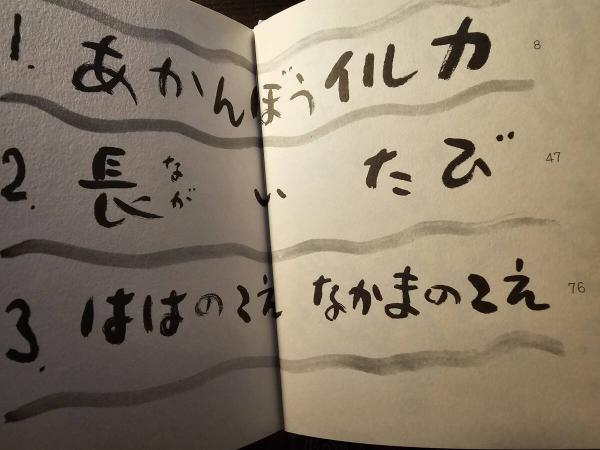 1. あかんぼうイルカ 8
2. 長ながい たび 47
3. ははのこえ なかまのこえ 76